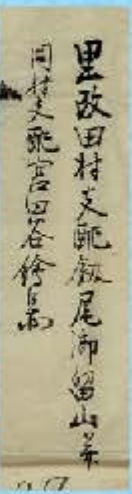 里改田村支配飯尾御留山并
同村支配宮田谷繪図